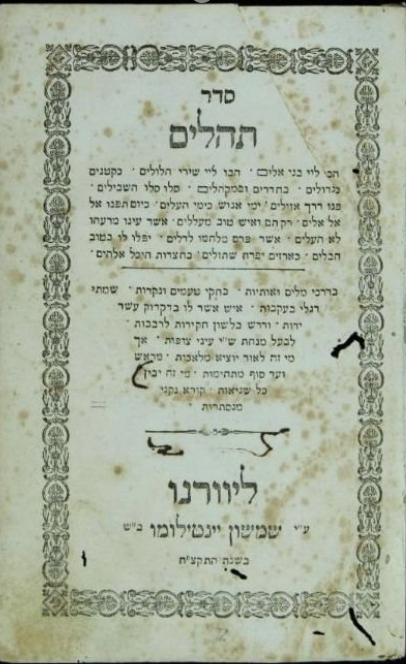 סדר
תהלים
הבו ליי בני אלים · הבו ליי שירי הלולים · כקטנים
כגדולים · בחדרים ובמקהלים · סלו סלו השבילים ·
פנו דרך אזילים · ימי אנוש כימי העלים · כיום תפנו אל
אל אלים · רק תם ואיש טוב מעללים · אשר עינו מרעהו
לא העלים · אשר פרס מלחמו לדלים · יפלו לו בטוב
חבלים · כארזים יפרח שתולים · בחצרות היכל אלהים ·
בדרכי מלים ואותיות · בחקי טעמים ונקדות · שמתי
רגלי בעקבות · איש אשר לו בדקדוק עשר
ידות · ודרש בלשון חקירות לרבבות ·
לבעל מנחת ש״י עיני צופות · אך
מי זה לאור יוציא מלאכות · מראש
ועד סוף מתמימות · מי זה יבין
כל שגיאות · קורא נקני
מנסתרות ·
ליוורנו
ע״י שמשון יינטילומו ב״ש
בשנת התקצ״ח